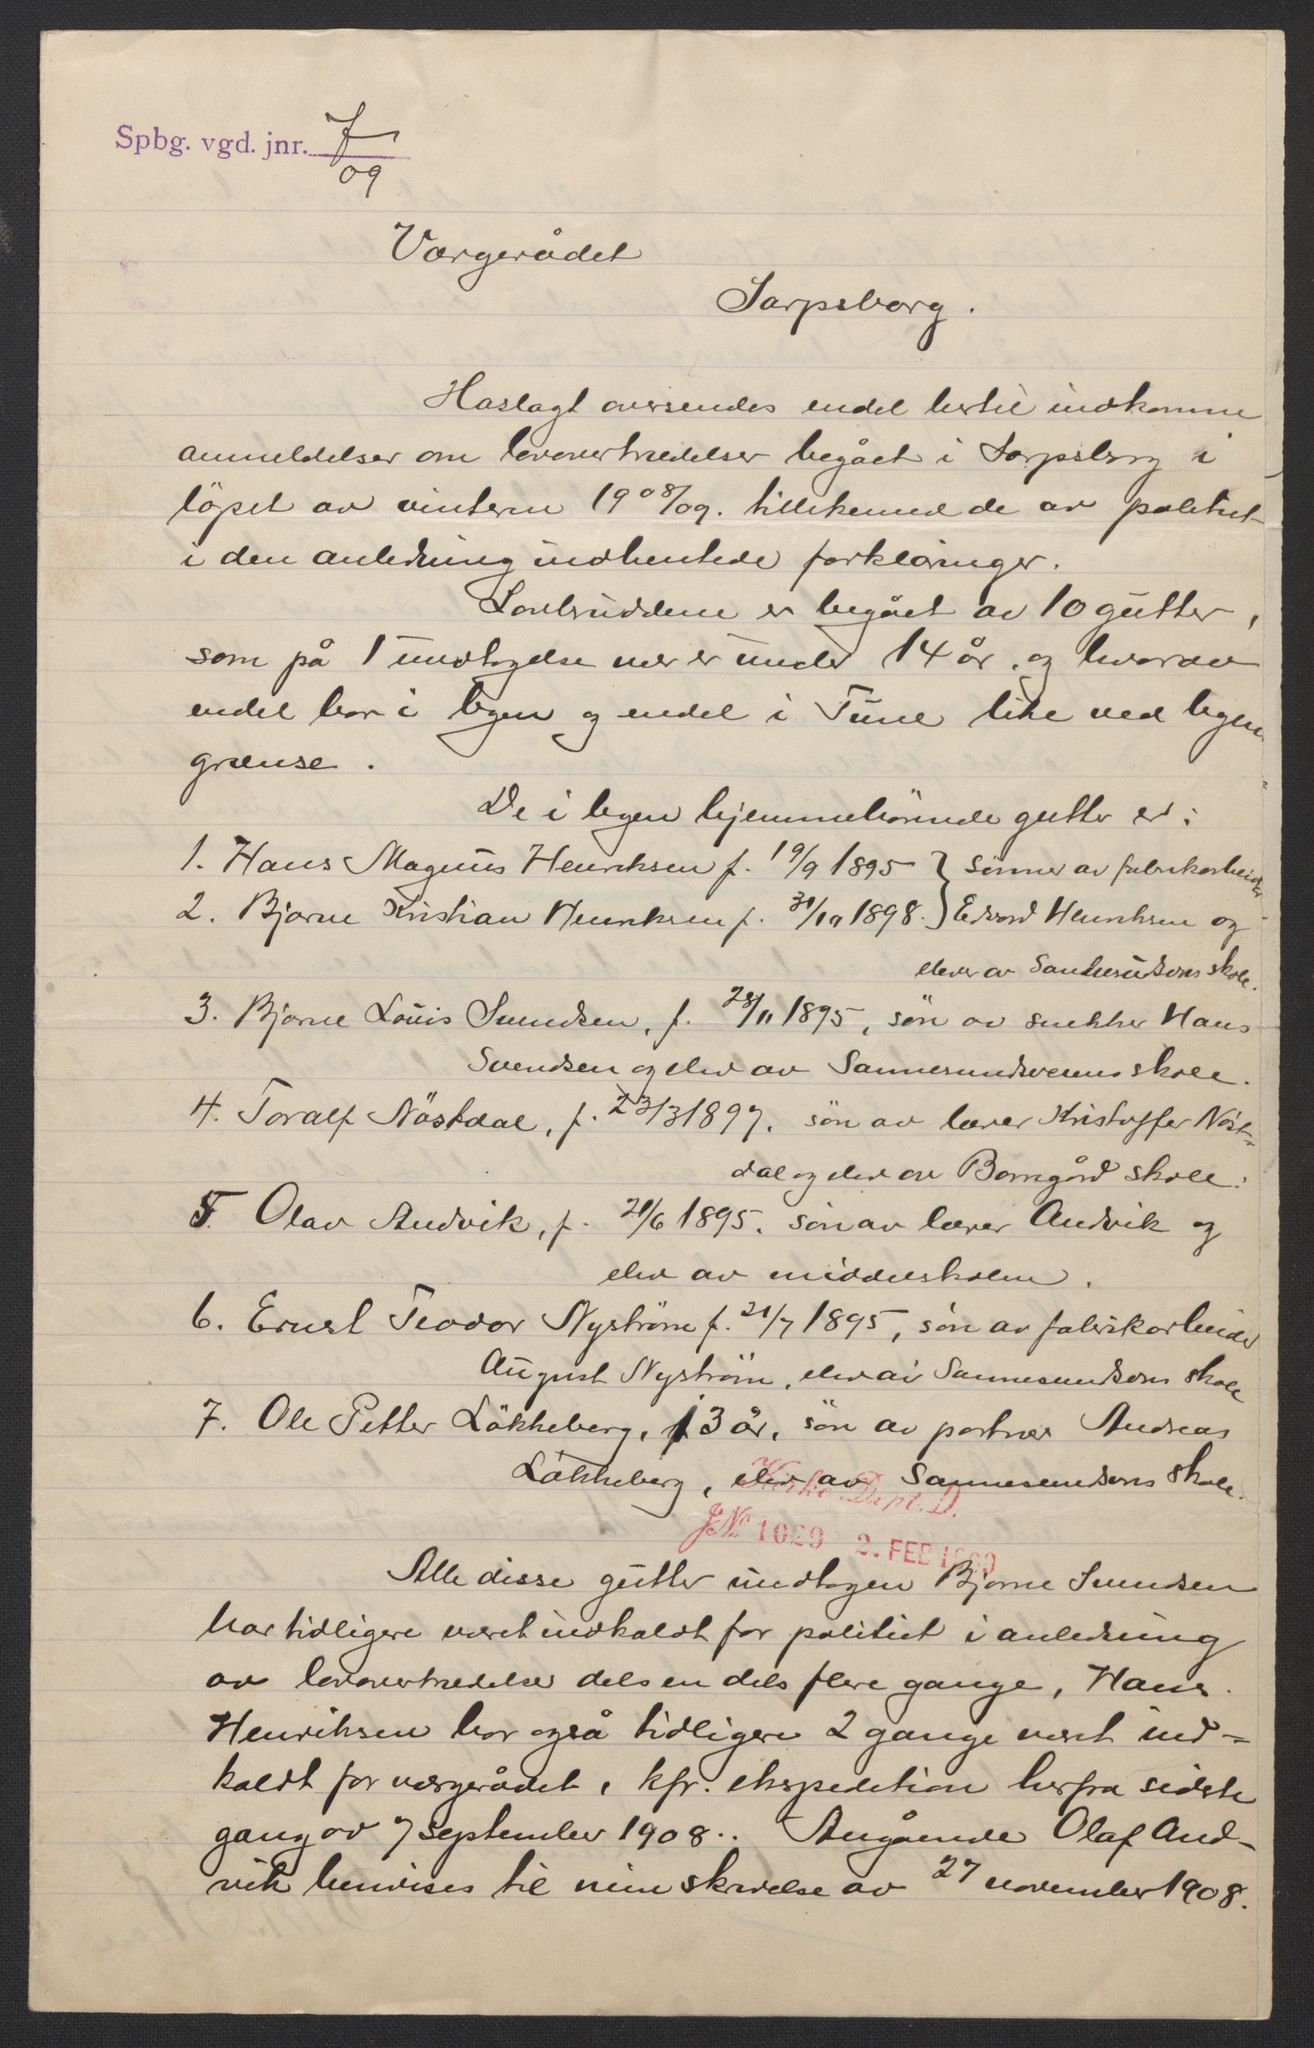 Spbg. vgd. jnr. 7/09
Værgerådet
Sarpsborg.
Hoslagt oversendes endel hertil indkomne
anmeldelser om lovovertrædelser begået i Sarpsborg i
löpet av vinteren 1908/09. tillikemed de av politiet
i den anledning indhentede forklaringer.
Lovbruddene er begået av 10 gutter,
som på 1 undtagelse nær er under 14 år, og hvorav
endel bor i byen og endel i Tune like ved byens
grænse.
De i byen hjemmehörende gutter er:
1. Hans Magnus Henriksen f. 19/9 1895 } sönner av fabrikarbeider
2. Bjarne Kristian Henriksen f. 31/10 1898. } Edvard Henriksen og
elever av Sandesundsveiens skole.
3. Bjarne Louis Svendsen, f. 28/11 1895, sön av snekker Hans
Svendsen og elev av Sannesundsveiens skole.
4. Toralf Nöstdal, f. 23/3 1897. sön av lærer Kristoffer Nöst-
dal og elev av Borregård skole.
5. Olav Andvik, f. 21/6 1895. sön av lærer Andvik og
elev av middelskolen.
6. Ernst Teodor Nyström f. 21/7 1895, sön av fabrikarbeider
August Nyström, elev av Sannesundsvns skole
7. Ole Petter Lökkeberg, 13 år, sön av portner Andreas
Lökkeberg, elev av Sannesundsvns skole.
Kirke-Dept. D.
J№ 1029 2. FEB 1909
Alle disse gutter undtagen Bjarne Svendsen
har tidligere været indkaldt for politiet i anledning
av lovovertrædelse dels en dels flere gange, Hans
Henriksen har også tidligere 2 gange været ind-
kaldt for værgerådet, kfr. ekspedition herfra sidste
gang av 7 september 1908.. Angående Olaf And-
vik henvises til min skrivelse av 27 november 1908.